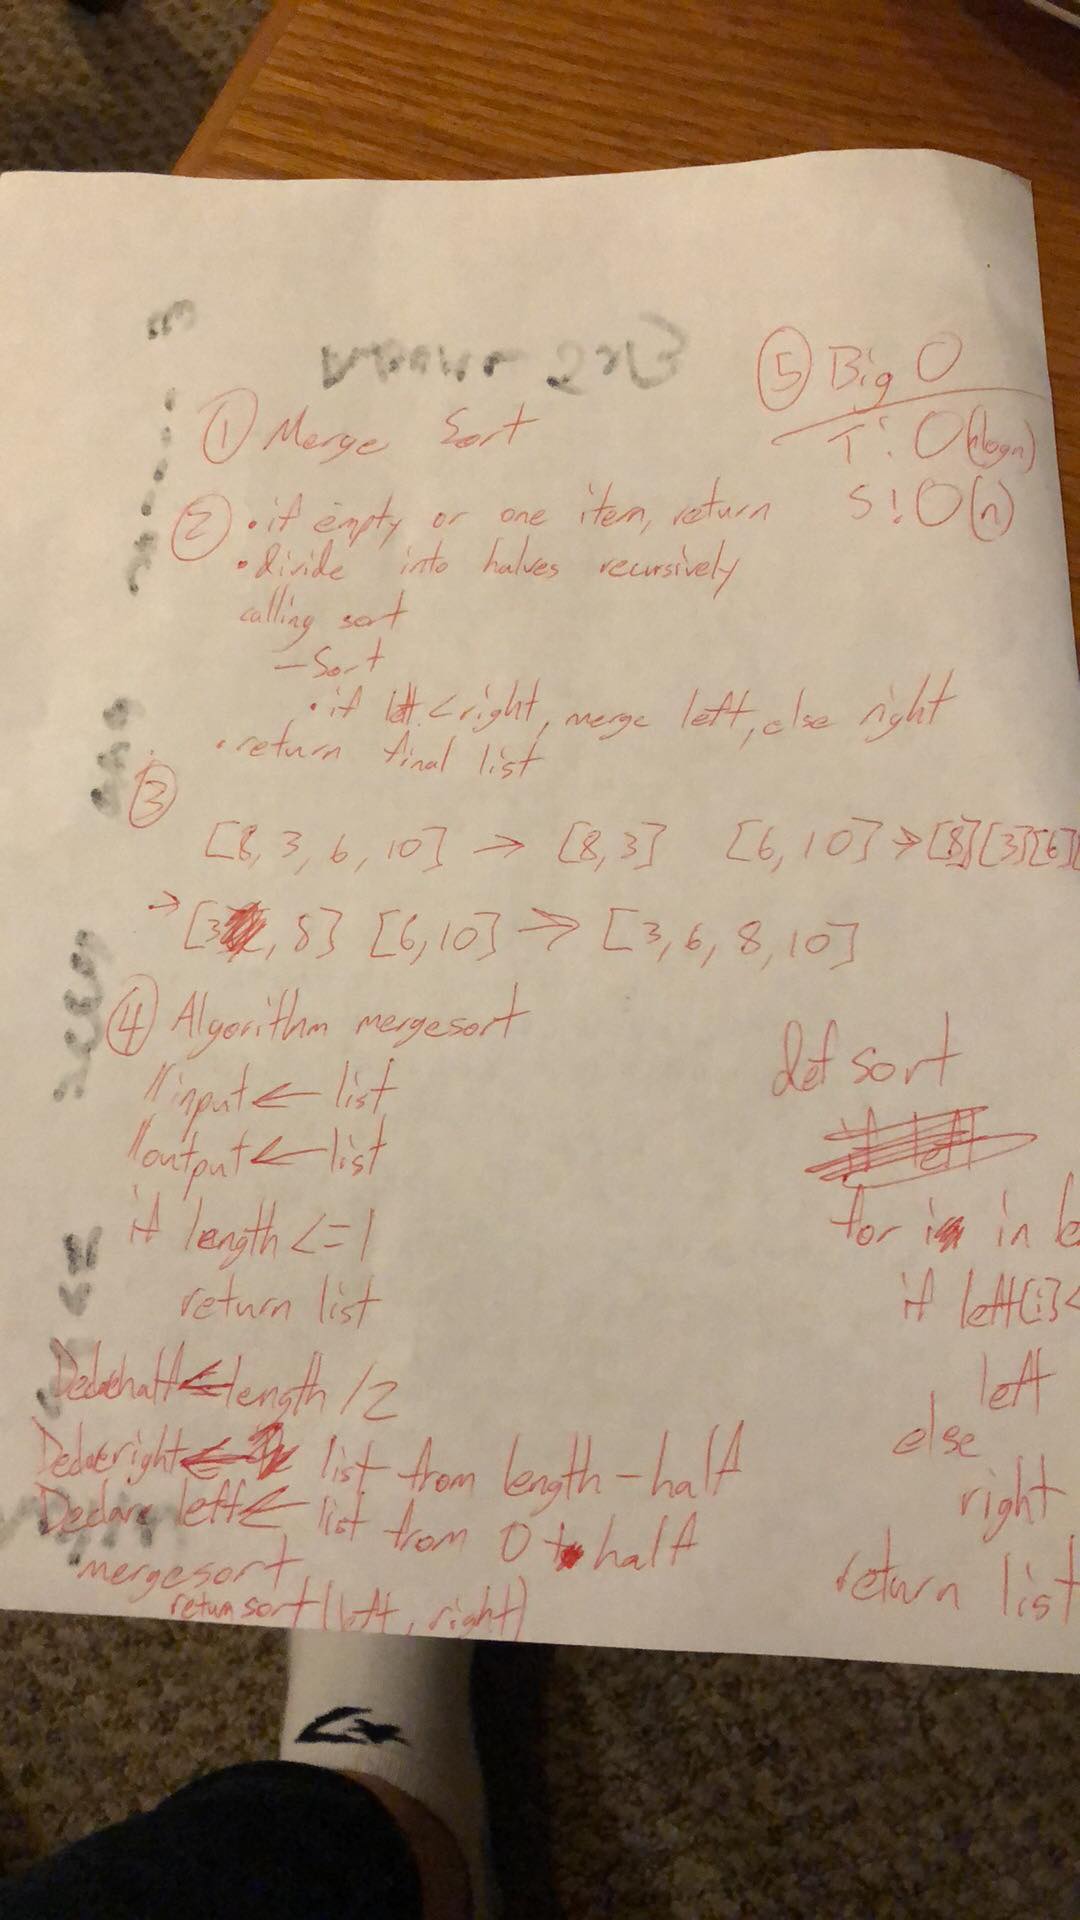 ① Merge Sort
② • if empty or one item, return
• divide into halves recursively
calling sort
- Sort
• if left < right, merge left, else right
• return final list
③
[8, 3, 6, 10] → [8,3] [6,10] → [8][3][6][
→ [3, 8] [6,10] → [3, 6, 8, 10]
④ Algorithm mergesort
// input ← list
// output ← list
if length <= 1
return list
Declare half ← length / 2
Declare right ← list from length - half
Declare left ← list from 0 to half
mergesort
return sort (left, right)
⑤ Big O
T: O(nlogn)
S: O(n)
def sort
for i in
if left[i] <
left
else
right
return list